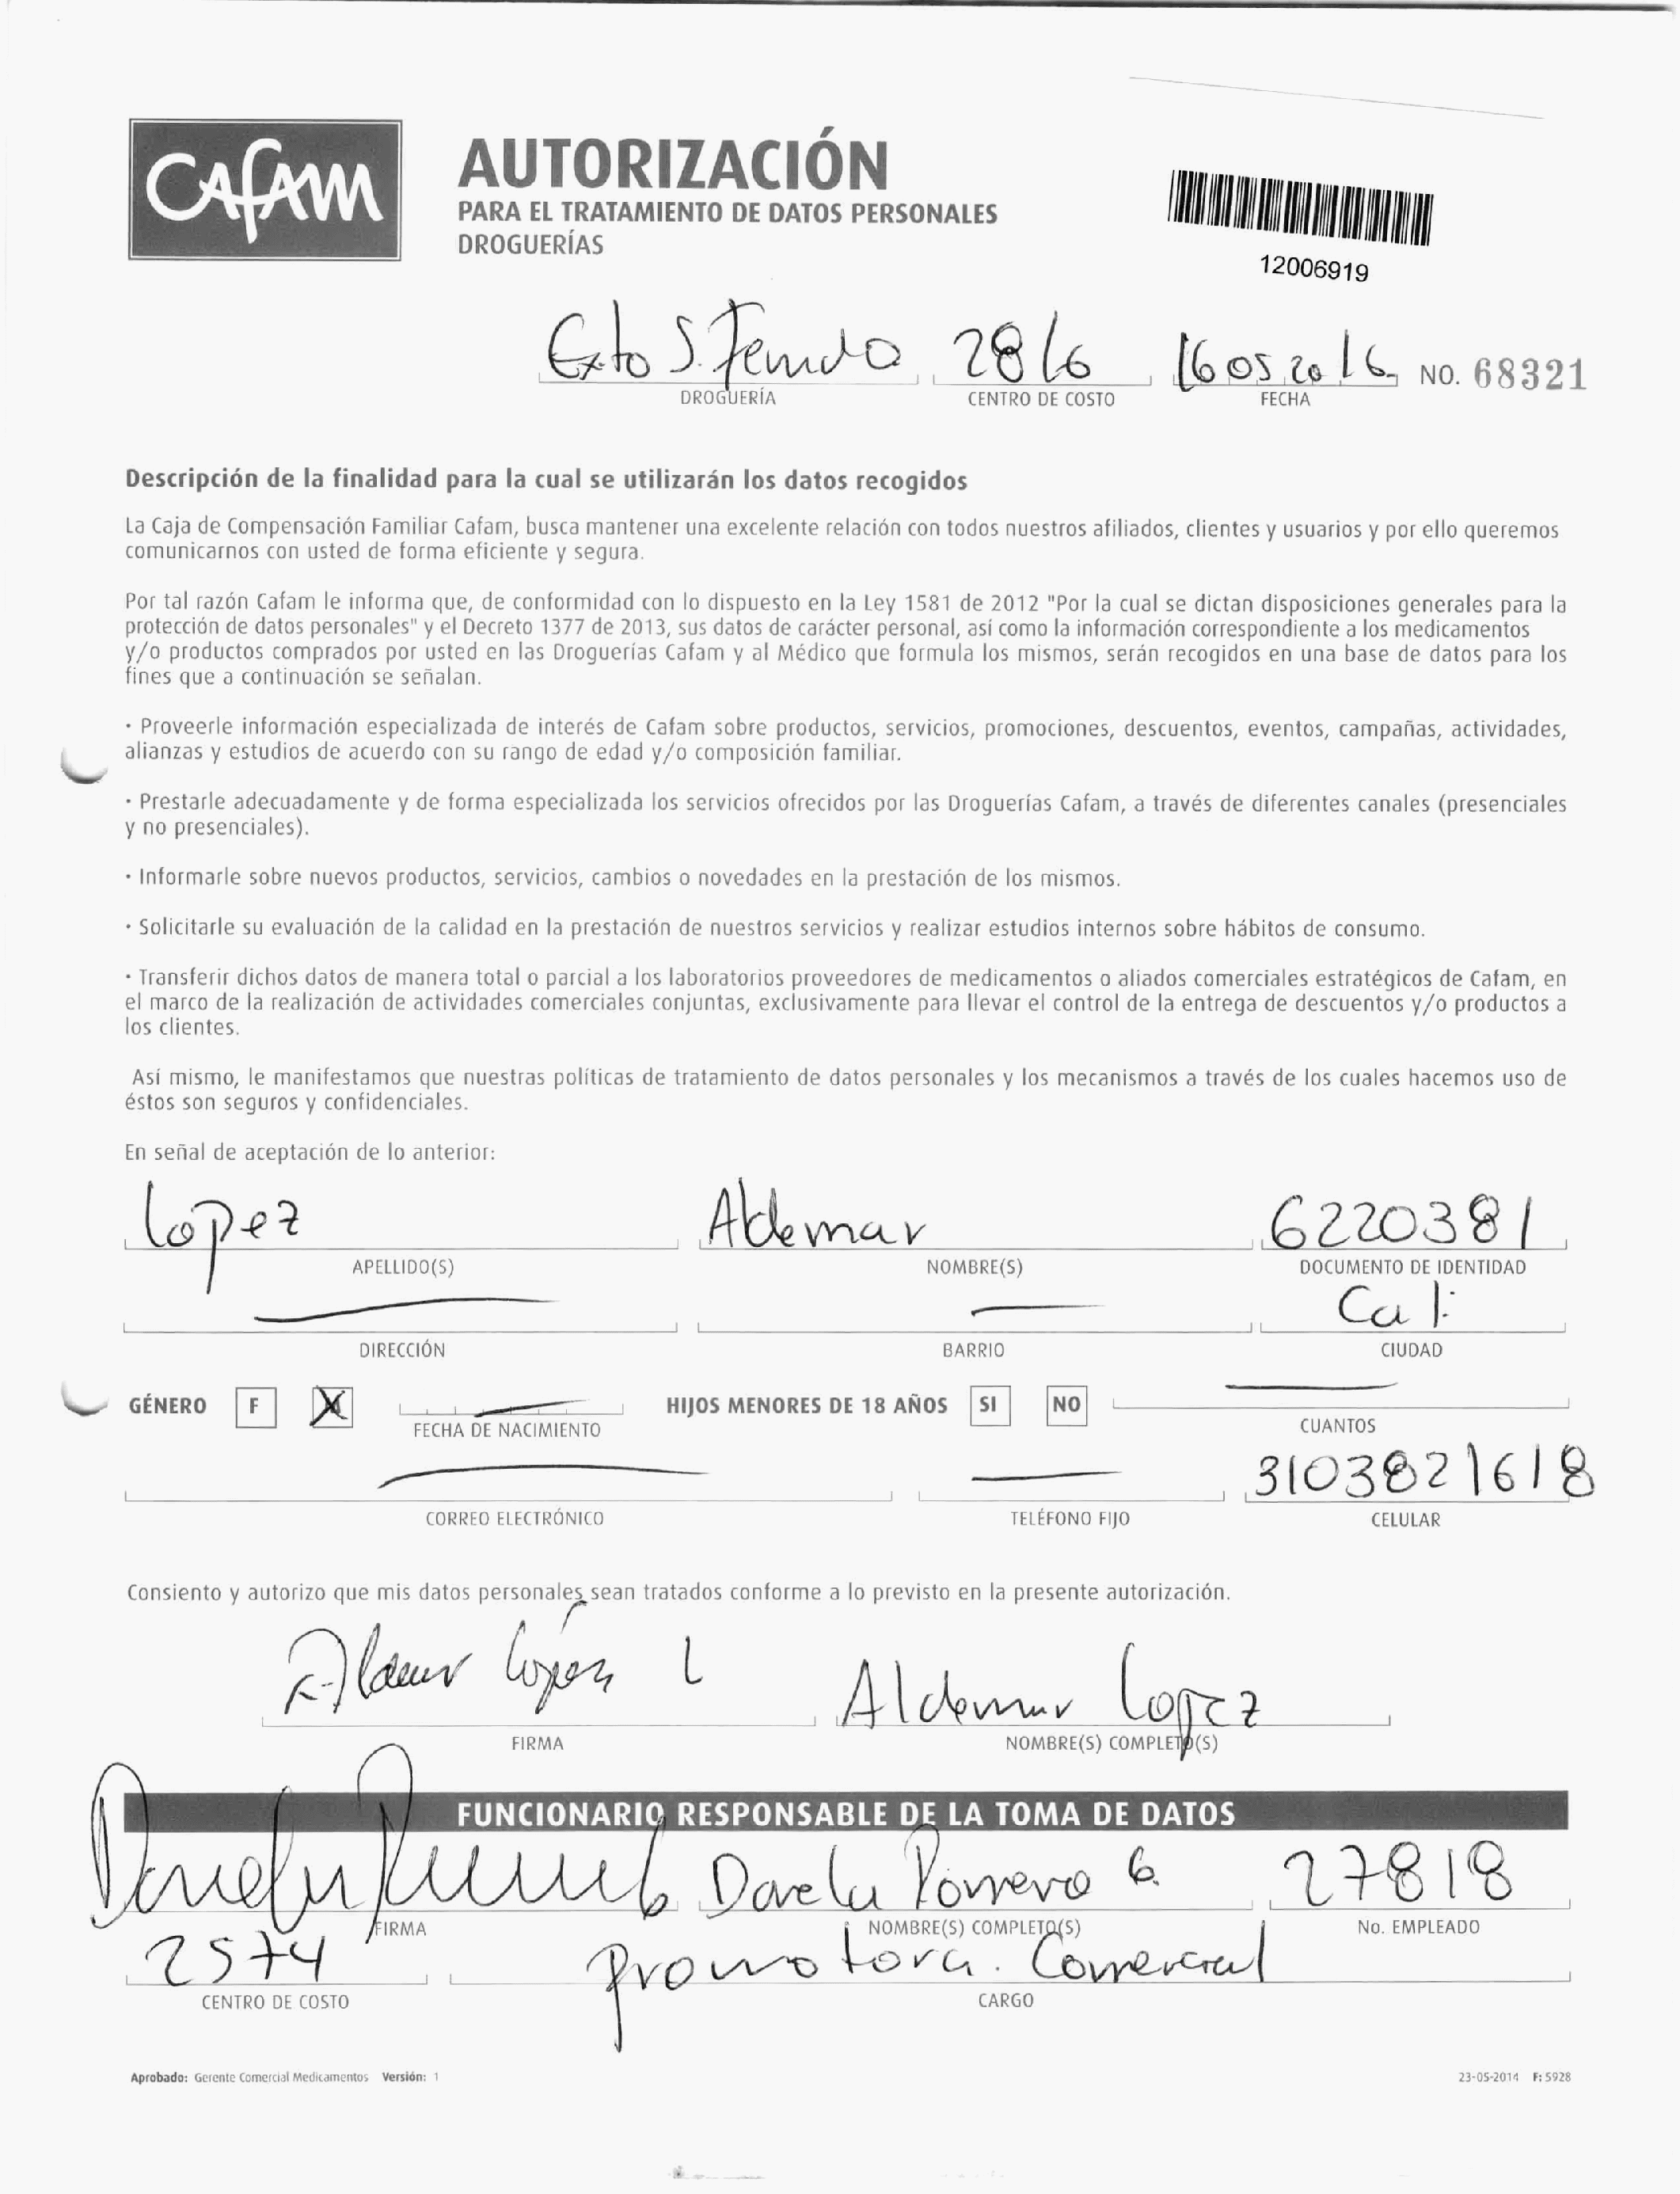 CAFAM
AUTORIZACIÓN
PARA EL TRATAMIENTO DE DATOS PERSONALES
DROGUERÍAS
12006919
S. 2816 16 05 2016 NO. 68321
DROGUERÍA CENTRO DE COSTO FECHA
Descripción de la finalidad para la cual se utilizarán los datos recogidos
La Caja de Compensación Familiar Cafam, busca mantener una excelente relación con todos nuestros afiliados, clientes y usuarios y por ello queremos
comunicarnos con usted de forma eficiente y segura.
Por tal razón Cafam le informa que, de conformidad con lo dispuesto en la Ley 1581 de 2012 "Por la cual se dictan disposiciones generales para la
protección de datos personales" y el Decreto 1377 de 2013, sus datos de carácter personal, así como la información correspondiente a los medicamentos
y/o productos comprados por usted en las Droguerías Cafam y al Médico que formula los mismos, serán recogidos en una base de datos para los
fines que a continuación se señalan.
· Proveerle información especializada de interés de Cafam sobre productos, servicios, promociones, descuentos, eventos, campañas, actividades,
alianzas y estudios de acuerdo con su rango de edad y/o composición familiar.
· Prestarle adecuadamente y de forma especializada los servicios ofrecidos por las Droguerías Cafam, a través de diferentes canales (presenciales
y no presenciales).
· Informarle sobre nuevos productos, servicios, cambios o novedades en la prestación de los mismos.
· Solicitarle su evaluación de la calidad en la prestación de nuestros servicios y realizar estudios internos sobre hábitos de consumo.
· Transferir dichos datos de manera total o parcial a los laboratorios proveedores de medicamentos o aliados comerciales estratégicos de Cafam, en
el marco de la realización de actividades comerciales conjuntas, exclusivamente para llevar el control de la entrega de descuentos y/o productos a
los clientes.
Así mismo, le manifestamos que nuestras políticas de tratamiento de datos personales y los mecanismos a través de los cuales hacemos uso de
éstos son seguros y confidenciales.
En señal de aceptación de lo anterior:
Lopez Aldemar 6220381
APELLIDO(S) NOMBRE(S) DOCUMENTO DE IDENTIDAD
Cali
DIRECCIÓN BARRIO CIUDAD
GÉNERO F X HIJOS MENORES DE 18 AÑOS SI NO
FECHA DE NACIMIENTO CUANTOS
3103821618
CORREO ELECTRÓNICO TELÉFONO FIJO CELULAR
Consiento y autorizo que mis datos personales sean tratados conforme a lo previsto en la presente autorización.
Lopez L Aldemar Lopez
FIRMA NOMBRE(S) COMPLETO(S)
FUNCIONARIO RESPONSABLE DE LA TOMA DE DATOS
27818
FIRMA NOMBRE(S) COMPLETO(S) No. EMPLEADO
2574 Promotora. Comercial
CENTRO DE COSTO CARGO
Aprobado: Gerente Comercial Medicamentos Versión: 1 23-05-2014 F: 5928